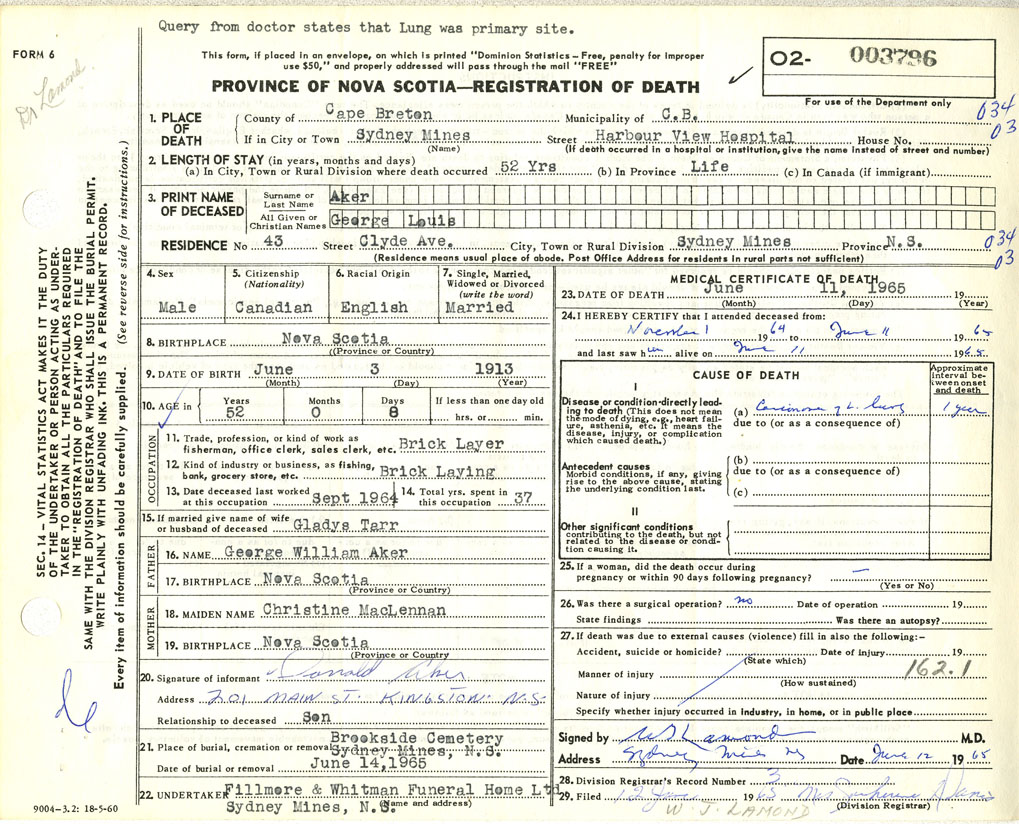 Query from doctor states that Lung was primary site.
FORM 6
Dr Lamond
This form, if placed in an envelope, on which is printed "Dominion Statistics – Free, penalty for improper
use $50," and properly addressed will pass through the mail "FREE"
O2- 003796
PROVINCE OF NOVA SCOTIA—REGISTRATION OF DEATH
For use of the Department only
034
03
1. PLACE OF DEATH
County of Cape Breton Municipality of C.B.
If in City or Town Sydney Mines Street Harbour View Hospital House No.
(Name) (If death occurred in a hospital or institution, give the name instead of street and number)
2. LENGTH OF STAY (in years, months and days)
(a) In City, Town or Rural Division where death occurred 52 Yrs (b) In Province Life (c) In Canada (if immigrant)
3. PRINT NAME OF DECEASED
Surname or Last Name Aker
All Given or Christian Names George Louis
RESIDENCE No 43 Street Clyde Ave. City, Town or Rural Division Sydney Mines Province N.S.
034
03
(Residence means usual place of abode. Post Office Address for residents in rural parts not sufficient)
4. Sex
Male
5. Citizenship
(Nationality)
Canadian
6. Racial Origin
English
7. Single, Married,
Widowed or Divorced
(write the word)
Married
8. BIRTHPLACE Nova Scotia
((Province or Country)
9. DATE OF BIRTH June 3 1913
(Month) (Day) (Year)
10. AGE in
Years Months Days If less than one day old
52 0 8 hrs. or min.
OCCUPATION
11. Trade, profession, or kind of work as
fisherman, office clerk, sales clerk, etc. Brick Layer
12. Kind of industry or business, as fishing,
bank, grocery store, etc. Brick Laying
13. Date deceased last worked
at this occupation Sept 1964
14. Total yrs. spent in
this occupation 37
15. If married give name of wife
or husband of deceased Gladys Tarr
FATHER
16. NAME George William Aker
17. BIRTHPLACE Nova Scotia
(Province or Country)
MOTHER
18. MAIDEN NAME Christine MacLennan
19. BIRTHPLACE Nova Scotia
(Province or Country
20. Signature of informant Donald Aker
Address 201 MAIN ST. KINGSTON N.S.
Relationship to deceased Son
21. Place of burial, cremation or removal Brookside Cemetery
Sydney Mines, N.S.
Date of burial or removal June 14,1965
22. UNDERTAKER Fillmore & Whitman Funeral Home Ltd
Sydney Mines, N.S.
(Name and address)
MEDICAL CERTIFICATE OF DEATH
23. DATE OF DEATH June 11, 1965 19
(Month) (Day) (Year)
24. I HEREBY CERTIFY that I attended deceased from:
November 1 1964 to June 11 1965
and last saw him alive on June 11 1965
CAUSE OF DEATH
Approximate
interval be-
tween onset
and death
I
Disease or condition directly lead-
ing to death (This does not mean
the mode of dying, e.g., heart fail-
ure, asthenia, etc. It means the
disease, injury, or complication
which caused death.)
(a) Carcinoma of L. Lung 1 year
due to (or as a consequence of)
Antecedent causes
Morbid conditions, if any, giving
rise to the above cause, stating
the underlying condition last.
(b)
due to (or as a consequence of)
(c)
II
Other significant conditions
contributing to the death, but not
related to the disease or condi-
tion causing it.
25. If a woman, did the death occur during
pregnancy or within 90 days following pregnancy? —
(Yes or No)
26. Was there a surgical operation? no Date of operation 19
State findings Was there an autopsy?
27. If death was due to external causes (violence) fill in also the following:–
Accident, suicide or homicide? Date of injury 19
(State which)
Manner of injury 162.1
(How sustained)
Nature of injury
Specify whether injury occurred in industry, in home, or in public place
Signed by W J Lamond M.D.
Address Sydney Mines NS Date June 12 1965
28. Division Registrar's Record Number 3
29. Filed 12 June 1965 Mrs
(Division Registrar)
W J. LAMOND
SEC. 14 – VITAL STATISTICS ACT MAKES IT THE DUTY
OF THE UNDERTAKER OR PERSON ACTING AS UNDER-
TAKER TO OBTAIN ALL THE PARTICULARS REQUIRED
IN THE "REGISTRATION OF DEATH" AND TO FILE THE
SAME WITH THE DIVISION REGISTRAR WHO SHALL ISSUE THE BURIAL PERMIT.
WRITE PLAINLY WITH UNFADING INK. THIS IS A PERMANENT RECORD.
Every item of information should be carefully supplied. (See reverse side for instructions.)
9004–3.2: 18-5-60